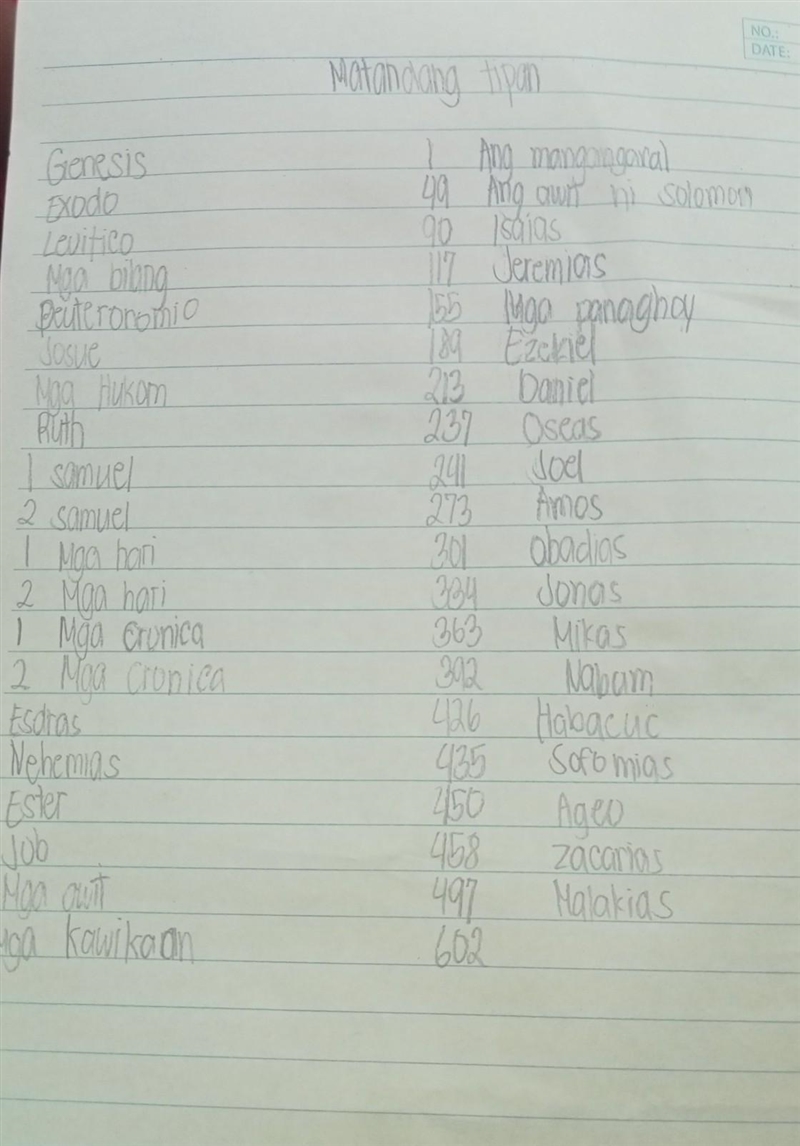 NO.:
DATE:
Matandang tipan
Genesis 1 Ang mangangaral
Exodo 49 Ang awit ni solomon
Levitico 90 Isaias
Mga bilang 117 Jeremias
Deuteronomio 155 Mga panaghoy
Josue 189 Ezekiel
Mga Hukom 213 Daniel
Ruth 237 Oseas
1 samuel 241 Joel
2 samuel 273 Amos
1 Mga hari 301 obadias
2 Mga hari 334 Jonas
1 Mga cronica 363 Mikas
2 Mga cronica 392 Nabam
Esdras 426 Habacuc
Nehemias 435 Sofomias
Ester 450 Ageo
Job 458 zacarias
Mga awit 497 Malakias
Mga kawikaan 602